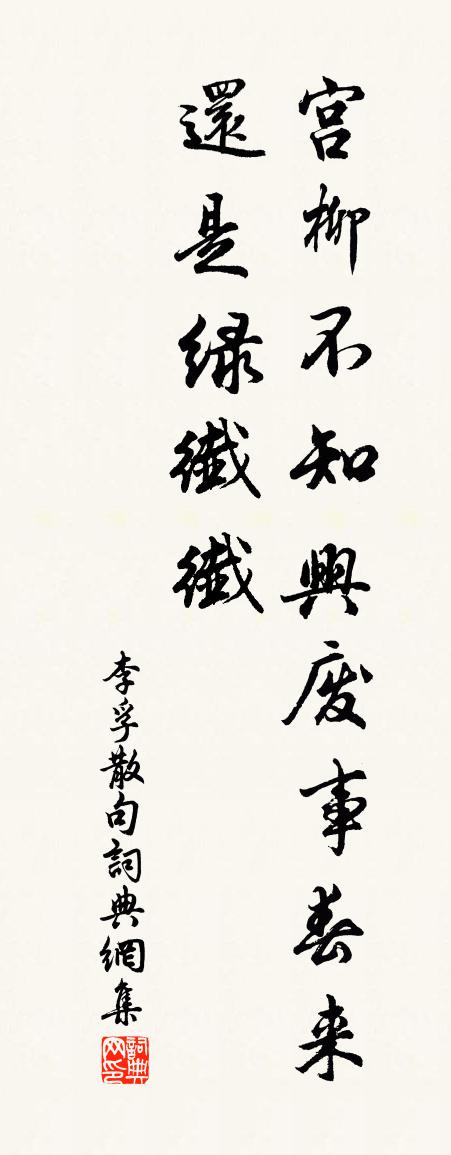 宮柳不知興廢事春来
還是緑纖纖
李孚散句詞典網集
詞典网印